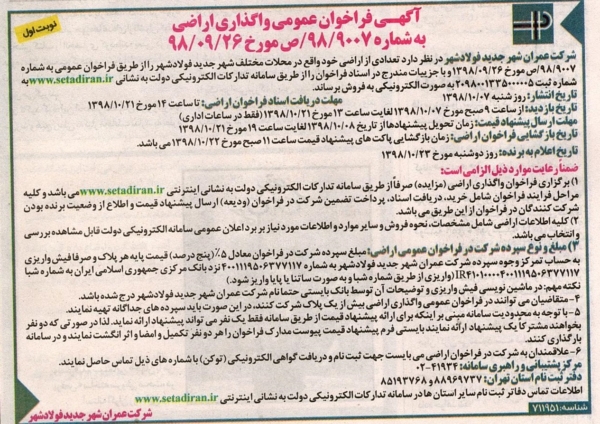 آگهی فراخوان عمومی واگذاری اراضی
به شماره ۹۸/۹۰۰۷/ص مورخ ۹۸/۰۹/۲۶
نوبت اول
شرکت عمران شهر جدید فولادشهر در نظر دارد تعدادی از اراضی خود واقع در محلات مختلف شهر جدید فولادشهر را از طریق فراخوان عمومی به شماره
۹۸/۹۰۰۷/ص مورخ ۱۳۹۸/۰۹/۲۶ با جزییات مندرج در اسناد فراخوان را از طریق سامانه تدارکات الکترونیکی دولت به نشانی www.setadiran.ir به
شماره ثبت ۲۰۹۸۰۰۱۳۳۵۰۰۰۰۰۵ به صورت الکترونیکی به فروش برساند.
تاریخ انتشار: روز شنبه ۱۳۹۸/۱۰/۰۷ مهلت دریافت اسناد فراخوان اراضی: تا ساعت ۱۴ مورخ ۱۳۹۸/۱۰/۲۱
تاریخ بازدید: از ساعت ۹ صبح مورخ ۱۳۹۸/۱۰/۰۷ لغایت ساعت ۱۳ مورخ ۱۳۹۸/۱۰/۲۱ (فقط در ساعات اداری)
مهلت ارسال پیشنهاد قیمت: زمان تحویل پیشنهادها از تاریخ ۱۳۹۸/۱۰/۰۸ لغایت ساعت ۱۹ مورخ ۱۳۹۸/۱۰/۲۱
تاریخ بازگشایی فراخوان اراضی: زمان بازگشایی پاکت های پیشنهاد قیمت ساعت ۱۱ صبح مورخ ۱۳۹۸/۱۰/۲۲ می باشد.
تاریخ اعلام به برنده: روز دوشنبه مورخ ۱۳۹۸/۱۰/۲۳
ضمناً رعایت موارد ذیل الزامی است:
۱) برگزاری فراخوان واگذاری اراضی (مزایده) صرفاً از طریق سامانه تدارکات الکترونیکی دولت به نشانی اینترنتی www.setadiran.ir می باشد و کلیه
مراحل فرایند فراخوان شامل خرید، دریافت اسناد، پرداخت تضمین شرکت در فراخوان (ودیعه) ارسال پیشنهاد قیمت و اطلاع از وضعیت برنده بودن
شرکت کنندگان در فراخوان از این طریق می باشد.
۲) کلیه اطلاعات اراضی شامل مشخصات، نحوه فروش و سایر موارد و اطلاعات مورد نیاز بر برد اعلان عمومی سامانه الکترونیکی دولت قابل مشاهده بررسی
و انتخاب می باشد.
۳) مبلغ و نوع سپرده شرکت در فراخوان عمومی اراضی: مبلغ سپرده شرکت در فراخوان معادل ۵٪ (پنج درصد) قیمت پایه هر پلاک و صرفا فیش واریزی
به حساب تمرکز وجوه سپرده شرکت عمران شهر جدید فولادشهر به شماره ۴۰۰۱۱۱۹۵۰۶۳۷۷۱۱۷ نزد بانک مرکزی جمهوری اسلامی ایران به شماره شبا
(واریزی از طریق شماره شبا و به صورت ساتنا یا پایا واریز شود.)
نکته مهم: در ماشین نویسی فیش واریزی و توضیحات آن توسط بانک بایستی حتما نام شرکت عمران شهر جدید فولادشهر درج شده باشد.
۴-متقاضیان می توانند در فراخوان عمومی واگذاری اراضی بیش از یک پلاک شرکت کنند، در این صورت باید سپرده های جداگانه تهیه نمایند.
۵- با توجه به محدودیت سامانه مبنی بر اینکه برای ارائه پیشنهاد قیمت از طریق سامانه فقط یک نفر می تواند پیشنهاد ارائه نماید. لذا در صورتی که دو نفر
بخواهند مشترکا یک پیشنهاد ارائه نمایند بایستی فرم پیشنهاد قیمت پیوست مدارک فراخوان را هر دو نفر تکمیل و امضا و اثر انگشت نمایند و در سامانه
بارگذاری کنند.
۶- علاقمندان به شرکت در فراخوان اراضی می بایست جهت ثبت نام و دریافت گواهی الکترونیکی (توکن) با شماره های ذیل تماس حاصل نمایند.
مرکز پشتیبانی و راهبری سامانه: ۴۱۹۳۴-۰۲
دفتر ثبت نام استان تهران: ۸۸۹۶۹۷۳۷ و ۸۵۱۹۳۷۶۸
اطلاعات تماس دفاتر ثبت نام سایر استان ها در سامانه تدارکات الکترونیکی دولت به نشانی اینترنتی www.setadiran.ir
شرکت عمران شهر جدید فولادشهر
شناسه: ۷۱۱۹۵۱